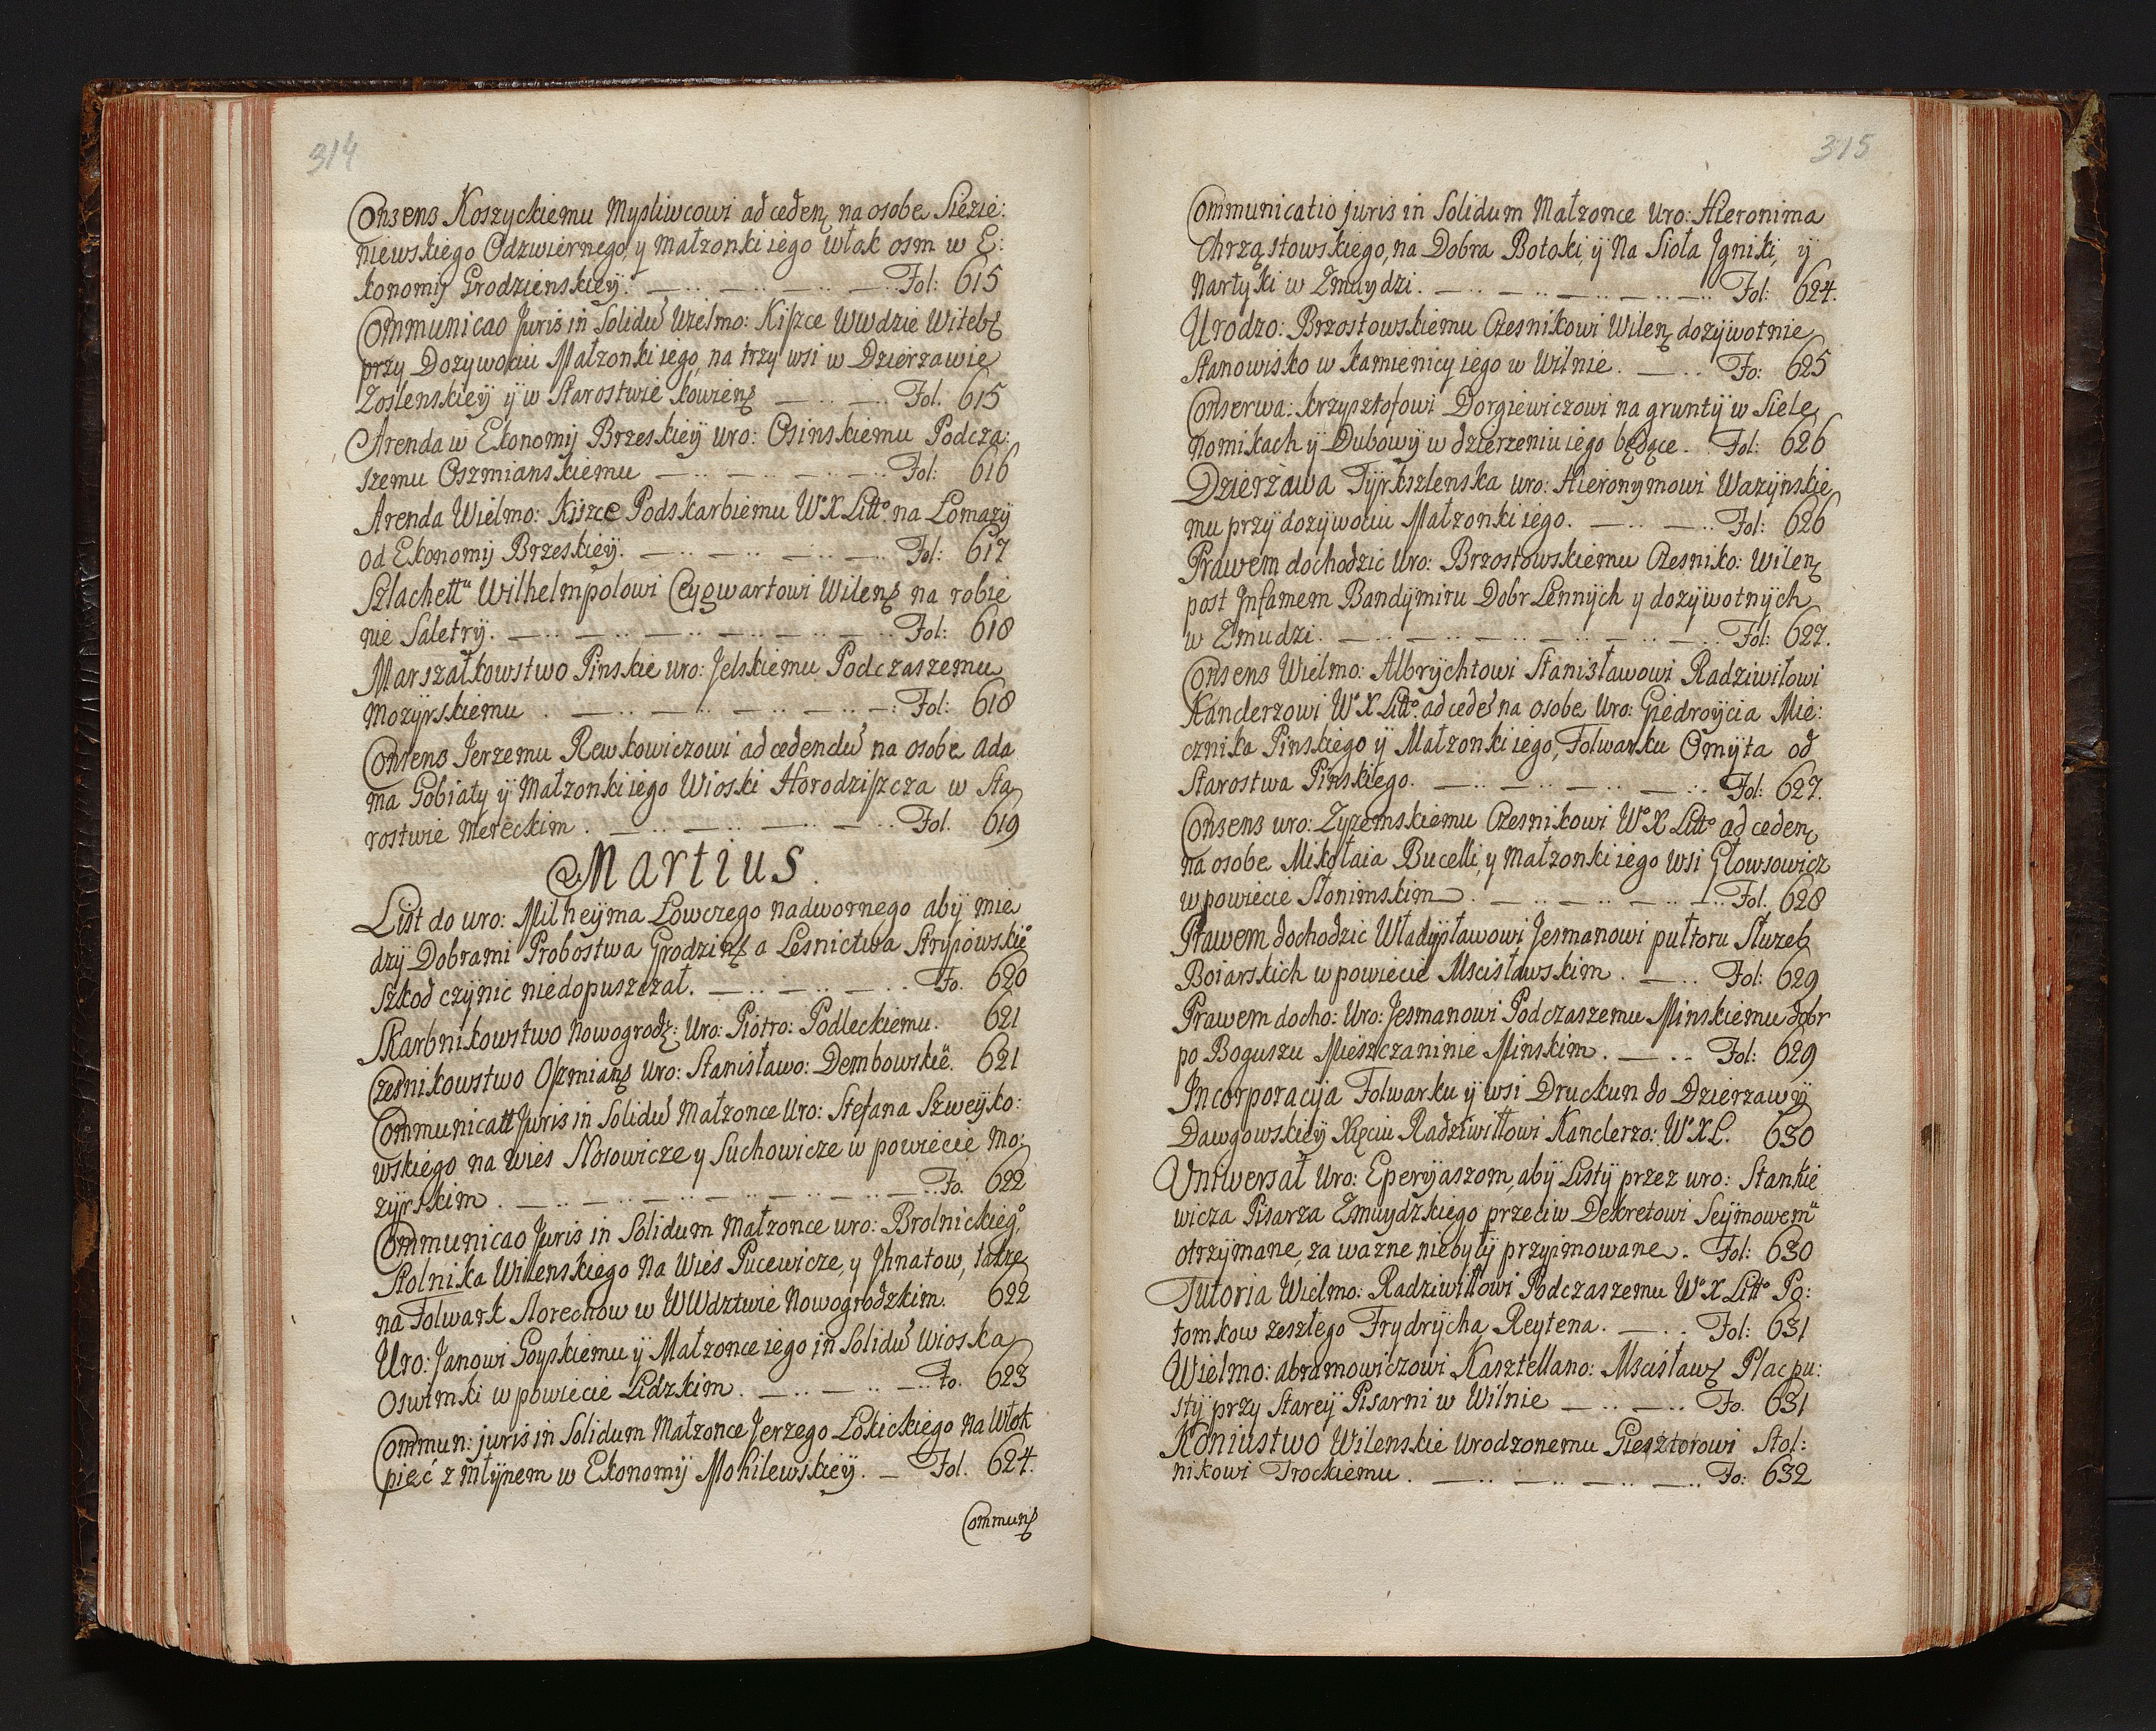 314
Consens Koszyckiemu Mysliwcowi ad ceden na osobe Siezie:
niewskiego Odzwiernego, y małzonki iego włok osm w E:
konomij Grodzienskieÿ. Fol: 615
Communicao Juris in Solidũ Wielmo: Kiszce WWdzie Witebs
przy Dozywociu Małzonki iego, na trzy wsi w Dzierzawie
Zoslenskieÿ ÿ w Starostwie kowiens Fol. 615
Arenda w Ekonomij Brzeskieÿ Uro: Osinskiemu Podcza:
szemu Oszmianskiemu Fol: 616
Arenda Wielmo: Kiszce Podskarbiemu W° X Litt° na Lomazÿ
od Ekonomij Brzeskieÿ. Fol: 617
Szlachett Wilhelmpolowi Ceygwartowi Wilens na robie
nie Saletrÿ. Fol: 618
Marszałkowstwo Pinskie uro: Jelskiemu Podczaszemu
Mozÿrskiemu. Fol: 618
Consens Jerzemu Rewkowiczowi ad cedendũ na osobe Ada
ma Gobiaty ÿ Małzonki iego Wioski Horodziszcza w Sta
rostwie Mereckim. Fol. 619
Martius.
List do uro: Milheÿma Lowczego nadwornego abÿ mie
dzÿ Dobrami Probostwa Grodzins a Lesnictwa Strypowskie°
Szkod czÿnic niedopuszczał. Fo. 620
Skarbnikowstwo Nowogrodz: Uro: Piotro: Podleckiemu. 621
Czesnikowstwo Oszmians uro: Stanisławo: Dembowskie. 621
Communicatt Juris in Solidũ Małzonce Uro: Stefana Szweÿko:
wskiego na wies Nosowicze y Suchowicze w powiecie Mo:
zÿrskim. Fo. 622
Communicao Juris in Solidum Małzonce uro: Brolnickieg°
Stolnika Wilenskiego na Wies Pucewicze, y Jhnatow, takze
na Folwark Norechow w WWdztwie Nowogrodzkim. 622
Uro: Janowi Goyskiemu ÿ Małzonce iego in Solidũ Wioska
Oswimki w powiecie Lidzkim. Fo. 623
Commun: juris in Solidum Małzonce Jerzego Lokickiego na Włok
pięć z młÿnem w Ekonomij Mohilewskieÿ. Fol. 624.
Communs
315
Communicatio juris in Solidum Małzonce Uro: Hieronima
Chrząstowskiego, na Dobra Botoki, ÿ na Sioła Jgniki, ÿ
Nartyki w Zmuydzi. Fol: 624.
Urodzo: Brzostowskiemu Czesnikowi Wilens dozÿwotnie
Stanowisko w kamienicy iego w Wilnie. Fo: 625
Conserwa: krzysztofowi Dorgiewiczowi na gruntÿ w Siele
nomikach ÿ Dubowÿ w dzierzeniu iego będące. Fol: 626
Dzierżawa Tÿrkszlenska uro: Hieronymowi Wazÿnskie
mu przÿ dozÿwociu Małzonki iego. Fol: 626
Prawem dochodzic Uro: Brzostowskiemu Czesniko: Wilens
post Infamem Bandÿmiru Dobr Lennÿch y dozÿwotnÿch
w Zmudzi. Fol: 627.
Consens Wielmo: Albrÿchtowi Stanisławowi Radziwiłowi
Kanclerzowi W° X Litt° ad cedẽ na osobe Uro: Giedroÿcia Mie:
cznika Pinskiego ÿ Małzonki iego, Folwarku Omÿta od
Starostwa Pinskiego. Fol: 627.
Consens uro: Zyzemskiemu Czesnikowi W° X Litt° ad ceden
na osobe Mikołaia Bucelli, y małzonki iego wsi Głowsowicz
w powiecie Słonimskim. Fol. 628
Prawem dochodzic Władysławowi Jesmanowi pułtoru Służeb
Boiarskich w powiecie Mscisławskim. Fol: 629
Prawem docho: Uro: Jesmanowi Podczaszemu Minskiemu dobr
po Boguszu Mieszczaninie Minskim. Fol: 629
Incorporacija Folwarku ÿ wsi Druckun do Dzierzawÿ
Dawgowskieÿ Xięciu Radziwiłłowi Kanclerzo: W° X L. 630
Uniwersał Uro: Eperÿaszom, abÿ Listÿ przez uro: Stankie
wicza Pisarza Zmuydzkiego przeciw Dekretowi Seÿmowem
otrzÿmane, za wazne niebyłÿ przyimowane. Fol: 630
Tutoria Wielmo: Radziwiłłowi Podczaszemu W° X Litt° Po:
tomkow zeszłego Frydrÿcha Reytena. Fol: 631
Wielmo: Abramowiczowi Kasztellano: Mscisławs Plac pu:
stÿ przy Stareÿ Pisarni w Wilnie Fo. 631
Koniustwo Wilenskie Urodzonemu Giesztorowi Stol:
nikowi Trockiemu. Fo: 632